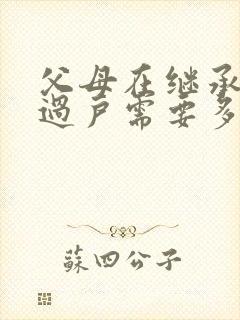 父母在继承
過户需要多
蘇四公子